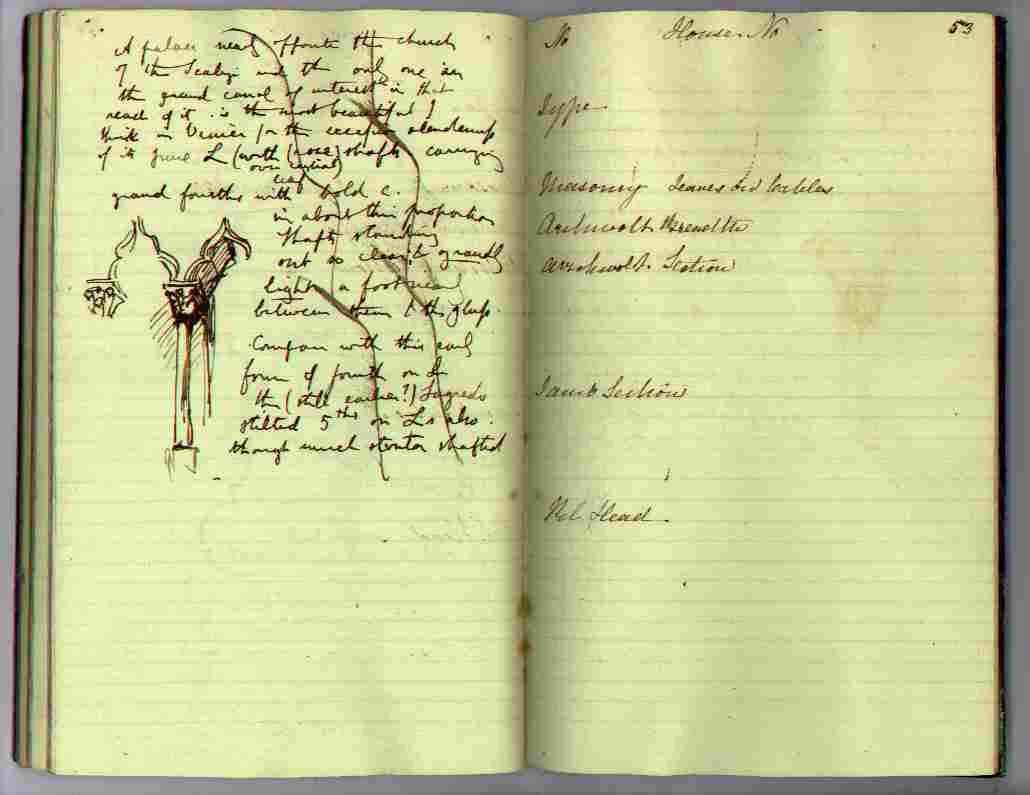 A palace nearly opposite the church
of the Scalzi and the only one on
the grand canal of interest in that
reach of it. is the most beautiful I
think in Venice for the
of its pure L (with (rose) shafts carrying
over capital)
grand fourths with bold c.
in about this proportion
shafts standing
out so clear & grandly
light a foot near
between them & the glass.
Compare with this early
form of fourth on L
the (still earlier?) Sagredo
stilted 5ths on Ls also:
though much stouter shafted
No House. No 53
Type
Masonry leaves
Archivolt
Archivolt. Section
Jamb Section
Head.